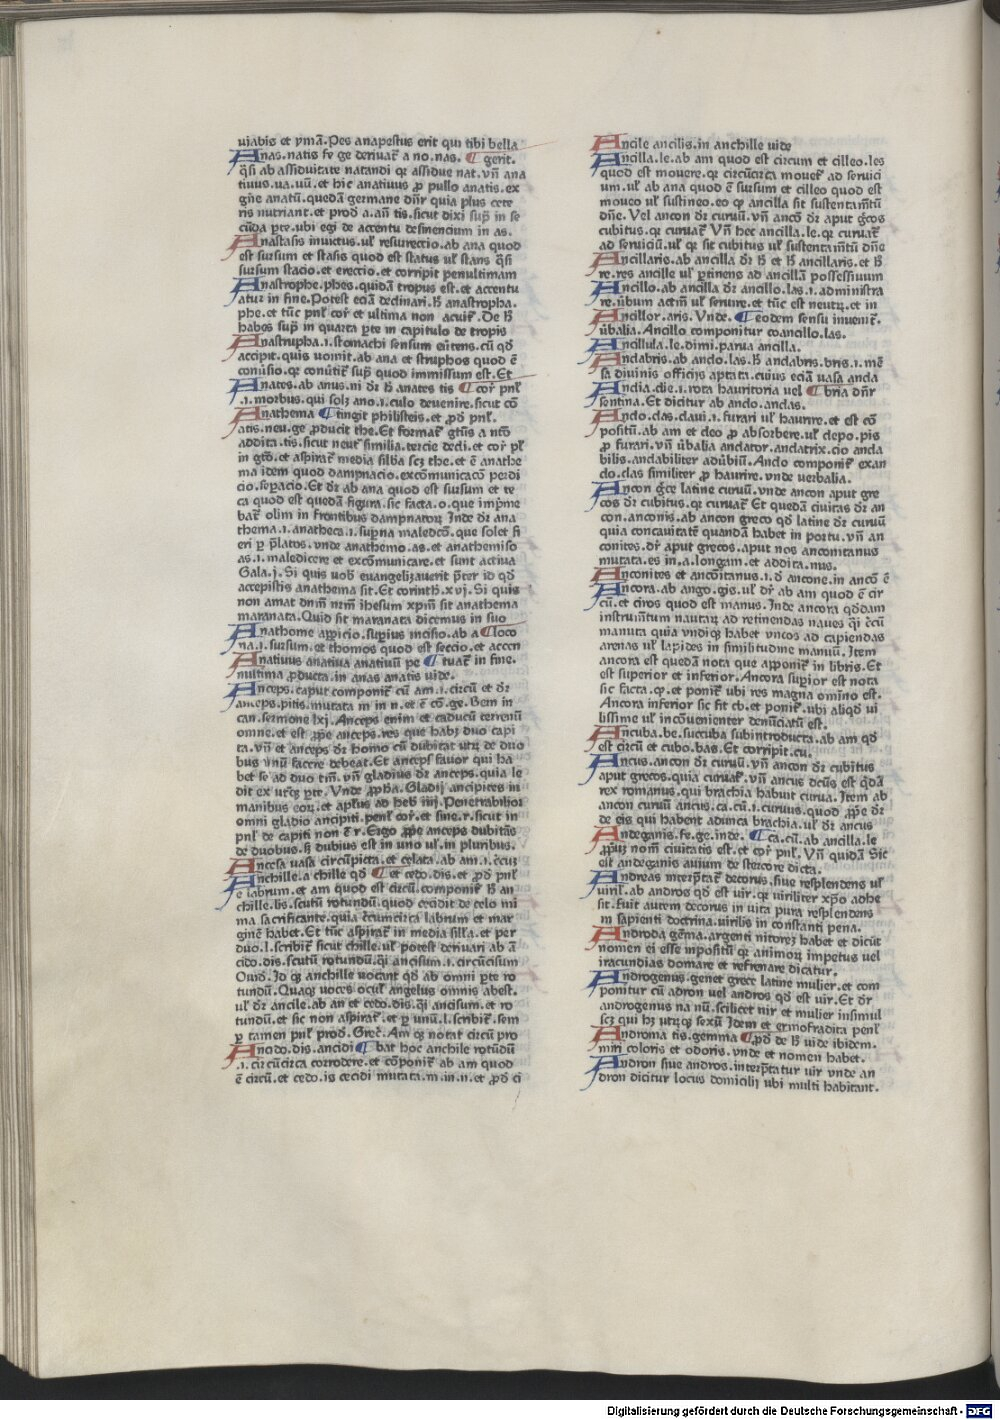 uiabis et ymā. Pes anapestus erit qui tibi bella
Anas. natis fe ge deriuat̄ a no. nas. ¶ gerit.
q̄si ab assiduitate natandi qꝛ assidue nat. vn̄ ana
tiuus. ua. uū. et hic anatiuus ꝓ pullo anatis. ex
gn̄e anatū. quedā germane dn̄r quia plus cete
ris nutriant. et prod̄ a. an̄ tis. sicut dixi sup̄ in se
cūda ꝑte. ubi egi de accentu desinencium in as.
Anastasis inuictus. ul̄ resurectio. ab ana quod
est sursum et stasis quod est status ul̄ stans q̄si
sursum stacio. et erectio. et corripit penultimam
Anastrophe. phes. quidā tropus est. et accentu
atur in fine. Potest eciā declinari. h̄ anastropha.
phe. et tūc pnl̄ cor̄ et ultima non acuit̄. De h̄
habes sup̄ in quarta ꝑte in capitulo de tropis
Anastrupha. i. stomachi sensum eūtens. cū qd̄
accipit. quis uomit. ab ana et struphos quod ē
conūsio. qꝛ conūtit̄ sup̄ quod immissum est. Et
Anates. ab anus. ni dr̄ h̄ anates tis ¶ cor̄ pnl̄
.i. morbus. qui solꝫ ano. i. culo deuenire. sicut cō
Anathema ¶ tingit philisteis. et ꝓd̄ pnl̄.
atis. neu. ge ꝓducit the. Et format̄ gtūs a ntō
addita. tis. sicut neut̄ similia. tercie decl̄i. et cor̄ pl̄
in gtō. et aspirat̄ media silba scꝫ the. et ē anathe
ma idem quod dampnacio. excōmunicacō perdi
cio. seꝑacio. Et dr̄ ab ana quod est sursum et te
ca quod est quedā figura. sic facta. o. que imp̄me
bat̄ olim in frontibus dampnatorꝫ Inde dr̄ ana
thema. i. anatheca. i. suꝑna maledcō. que solet fi
eri ꝑ p̄latos. vnde anathemo. as. et anathemiso
as. i. maledicere et excōmunicare. et sunt actiua
Gala. j. Si quis uob̄ euangelizauerit p̄ter id qd̄
accepistis anathema sit. Et corinth. xvj. Si quis
non amat dn̄m nr̄m ihesum xp̄m sit anathema
maranata. Quid sit maranata dicemus in suo
Anathome apꝑicio. suꝑius incisio. ab a ¶ loco
na. i. sursum. et thomos quod est seccio. et accen
Anatiuus anatiua anatiuū pe ¶ tuat̄ in fine.
nultima ꝓducta. in anas anatis uide.
Anceps. caput componit̄ cū am. i. circū et dr̄
anceps. pitis. mutata m in n. et ē cō. ge. Bern in
can. sermone lxj. Anceps enim et caducū terrenū
omne. et est ꝓp̄e anceps. res que habꝫ duo capi
ta. vn̄ et anceps dr̄ homo cū dubitat utꝝ de duo
bus vnū facere debeat. Et ancepſ fauor qui ha
bet se ad duo tm̄. vn̄ gladius dr̄ anceps. quia le
dit ex utraqꝫ ꝑte. Vnde ꝓp̄ha. Gladij ancipites in
manibus eoꝝ. et apl̄us ad heb̄ iiij. Penetrabilior
omni gladio ancipiti. penl̄ cor̄. et sine. r. sicut in
pnl̄ de capiti non ē r. Ergo ꝓp̄e anceps dubitās
de duobus. h̄ dubius est in uno ul̄. in pluribus.
Ancesa uasa circūpicta. et celata. ab am. i. c̄cūꝫ
Anchille. a chille qd̄ ¶ et cedo. dis. et ꝓd̄ pnl̄
ē labrum. et am quod est circū. componit̄ h̄ an
chille. lis. scutū rotundū. quod cecidit de celo mi
ma sacrificante. quia c̄cumcirca labrum et mar
ginē habet. Et tūc aspirat̄ in media sill̄a. et per
duo. l. scribit̄ sicut chille. ul̄ potest deriuari ab ā
cido. dis. scutū rotundū. q̄si ancisum. i. circūcisum
Ouid̄. Id qꝫ anchille uocant qd̄ ab omni ꝑte ro
tundū. Quaqꝫ uoces ocul̄ angelus omnis abest.
ul̄ dr̄ ancile. ab an et cedo. dis. q̄si ancisum. et ro
tundū. et sic non aspirat̄. et ꝑ unū. l. scribit̄. sem
ꝑ tamen pnl̄ prod̄. Grec̄. Am̄ qꝫ notat circū pro
Ancido. dis. ancidi ¶ bat hoc anchile rotūdū
.i. circūcirca corrodere. et cōponit̄ ab am quod
ē circū. et cedo. is cecidi mutata. m. in. n. et ꝓd̄ ci
Ancile ancilis. in anchille uide
Ancilla. le. ab am quod est circum et cilleo. les
quod est mouere. qꝛ circūcirca mouet̄ ad seruici
um. ul̄ ab ana quod ē sursum et cilleo quod est
moueo ul̄ sustineo. eo qꝫ ancilla sit sustentam̄tū
dn̄e. Vel ancon dr̄ curuū. vn̄ ancō dr̄ aput ḡcos
cubitus. qꝛ curuat̄ Vn̄ hec ancilla. le. qꝛ curuat̄
ad seruiciū. ul̄ qꝛ sic cubitus ul̄ sustentam̄tū dn̄e
Ancillaris. ab ancilla dr̄ h̄ et h̄ ancillaris. et h̄
re. res ancille ul̄ ꝑtinens ad ancillā possessiuum
Ancillo. ab ancilla dr̄ ancillo. las. i. administra
re. ūbum actiū ul̄ seruire. et tūc est neutꝝ. et in
Ancillor. aris. Vnde. ¶ eodem sensu inuenit̄.
ūbalia. Ancillo componitur coancillo. las.
Ancillula. le. dimi. parua ancilla.
Andabris. ab ando. las. h̄ andabris. bris. i. mē
sa diuinis officijs aptata. cuius eciā uasa anda
Andia. die. i. rota hauritoria vel ¶ bria dn̄r
sentina. Et dicitur ab ando. andas.
Ando. das. daui. i. furari ul̄ haurire. et est cō
positū. ab am et deo ꝓ absorbere. ul̄ depo. pis
ꝓ furari. vn̄ ūbalia andator. andatrix. cio anda
bilis. andabiliter adūbiū. Ando componit̄ exan
do. das similiter ꝓ haurire. vnde verbalia.
Ancon ḡce latine curuū. vnde ancon aput gre
cos dr̄ cubitus. qꝛ curuat̄ Et quedā ciuitas dr̄ an
con. anconis. ab ancon greco qd̄ latine dr̄ curuū
quia concauitatē quandā habet in portu. vn̄ an
conites. dr̄ aput grecos. aput nos anconitanus
mutata. es in. a. longam. et addita. nus.
Anconites et anconitanus. i. d̄ ancone. in ancō ē
Ancora. ab ango. gis. ul̄ dr̄ ab am quod ē cir
cū. et ciros quod est manus. Inde ancora qd̄dam
instrum̄tum nautarꝫ ad retinendas naues q̄si c̄cū
manuta quia vndiqꝫ habet vncos ad capiendas
arenas ul̄ lapides in similitudine manuū. Item
ancora est quedā nota que apponit̄ in libris. Et
est superior et inferior. Ancora suꝑior est nota
sic facta. ꝙ. et ponit̄ ubi res magna omīno est.
Ancora inferior sic fit cb. et ponit̄. ubi aliqd̄ ui
lissime ul̄ incōuenienter denūciatū est.
Ancuba. be. succuba subintroducta. ab am qd̄
est circū et cubo. bas. Et corripit. cu.
Ancus. ancon dr̄ curuū. vn̄ ancon dr̄ cubitus
aput grecos. quia curuat̄. vn̄ ancus dcūs est q̄dā
rex romanus. qui brachia habuit curua. Item ab
ancon curuū ancus. ca. cū. i. curuus. quod ꝓp̄e dr̄
de eis qui habent adunca brachia. ul̄ dr̄ ancus
Andeganis. fe. ge. inde. ¶ ca. cū. ab ancilla. le
ꝓp̄iū nom̄ ciuitatis est. et cor̄ pnl̄. Vn̄ quidā Sic
est andeganis auium de stercore dicta.
Andreas interp̄tat̄ decorus. siue resplendens ul̄
uiril̄. ab andros qd̄ est uir. qꝛ uiriliter xp̄o adhe
sit. Fuit autem decorus in uita pura resplendens
in sapienti doctrina. uirilis in constanti pena.
Androda gēma. argenti nitorem habet et dicūt
nomen ei esse inpositū qꝛ animoꝝ impetus vel
iracundias domare et refrenare dicatur.
Androgenus. genet grece latine mulier. et com
ponitur cū adron vel andros qd̄ est uir. Et dr̄
androgenus na nū. scilicet uir et mulier insimul
scꝫ qui hꝫ utrūqꝫ sexū Idem et ermofradita penl̄
Androma tis. gemma ¶ ꝓd̄ de h̄ uide ibidem.
miri coloris et odoris. vnde et nomen habet.
Andron siue andros. interp̄tatur uir vnde an
dron dicitur locus domicilij ubi multi habitant.
Digitalisierung gefördert durch die Deutsche Forschungsgemeinschaft - DFG